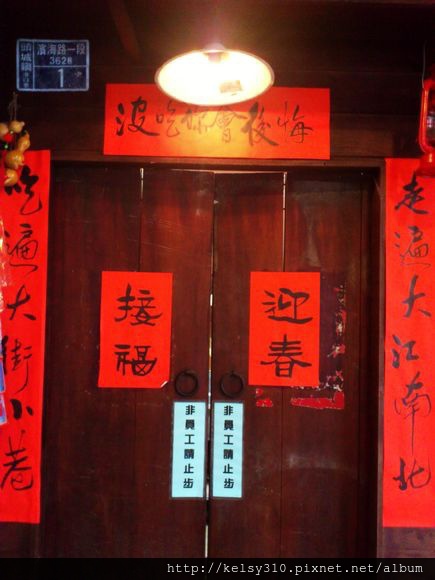 頭城鎮
濱海路一段
3628
1
沒吃你會後悔
走遍大江南北
吃遍大街小巷
迎春
接福
非員工請止步
非員工請止步
http://kelsy310.pixnet.net/album